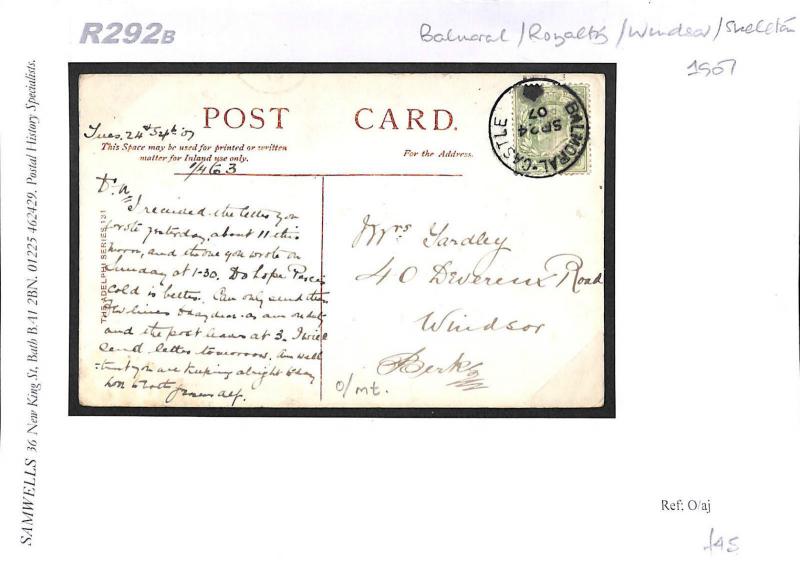 R292B
Balmoral / Royalty / Windsor / Skeleton
1907
SAMWELLS 36 New King St, Bath BA1 2BN. 01225 462429. Postal History Specialists.
POST CARD.
Tues. 24th Sept 07
This Space may be used for printed or written
matter for Inland use only.
For the Address.
BALMORAL·CASTLE
SP 24
07
THE ADELPHI SERIES 131
I received the letter you
wrote yesterday, about 11 this
morn, and the one you wrote on
Sunday at 1-30. Do hope
cold is better. Can only send these
few lines as am on duty
and the post leaves at 3. I will
send letter tomorrow. Am well
trust you are keeping alright
Mrs Yardley
40 Devereux Road
Windsor
Berks
O/mt.
Ref: O/aj
£45